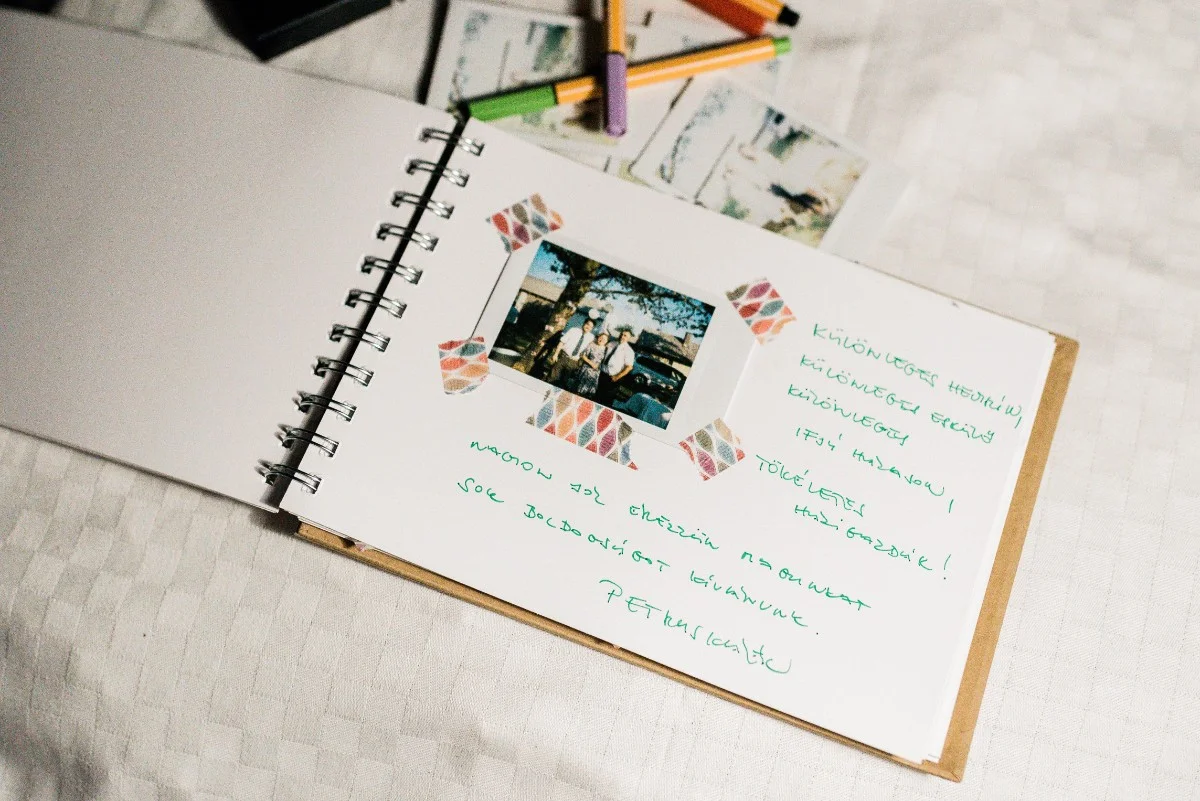 KÜLÖNLEGES HELYSZÍN,
KÜLÖNLEGES ESKÜVŐ
KÜLÖNLEGES
IFJÚ HÁZASOK,
TÖKÉLETES
HÁZIGAZDÁK!
NAGYON JÓL ÉREZZÜK MAGUNKAT
SOK BOLDOGSÁGOT KÍVÁNUNK.